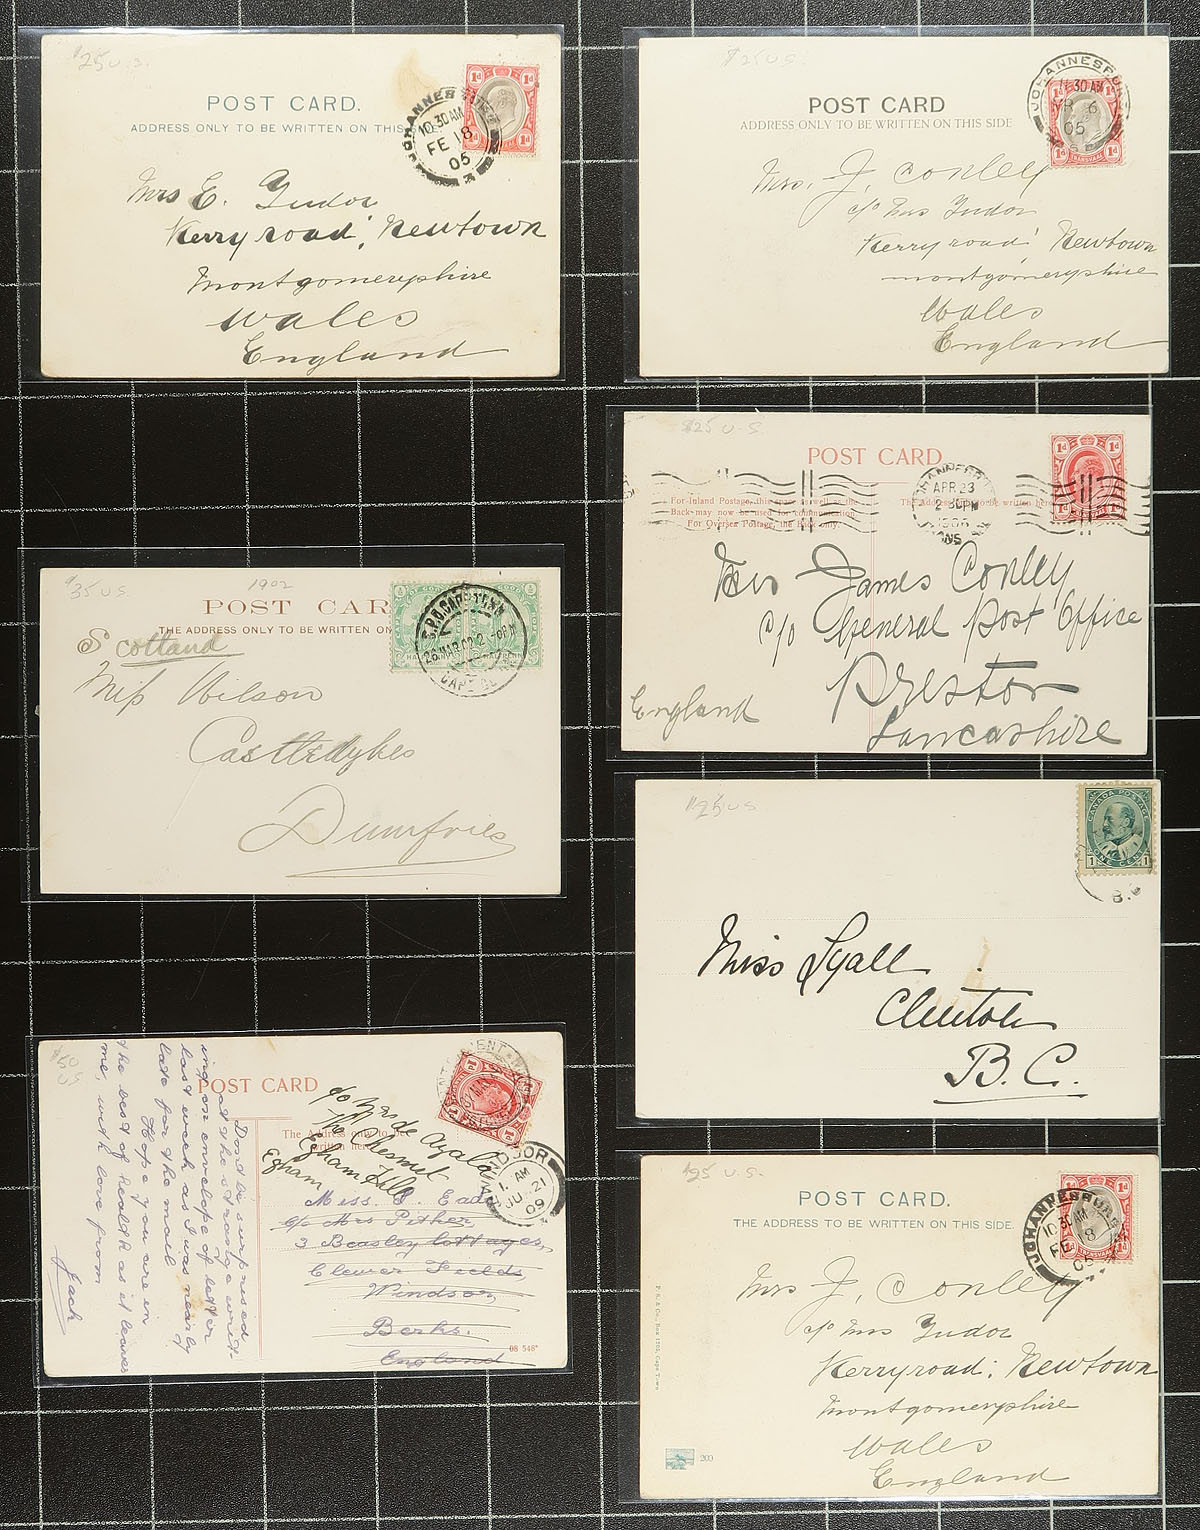 $25 U.S.
POST CARD.
ADDRESS ONLY TO BE WRITTEN ON THIS
JOHANNESBURG
10.30 AM
FE 18
05
1d 1d
1d
Mrs E. Tudor
Kerry road, Newtown
Montgomeryshire
Wales
England
$25 U.S.
POST CARD
ADDRESS ONLY TO BE WRITTEN ON THIS SIDE
JOHANNESBURG
11.30 AM
6
05
TRANSVAAL
1d 1d
Mrs. J. Conley
c/o Mrs Tudor
Kerry road Newtown
Montgomeryshire
Wales
England
$25 U-S
POST CARD
For Inland Postage, this space as well as the
Back may now be used for communication
For Oversea Postage, the Back only.
The Address to be written here
JOHANNESBURG
APR 23
2 30PM
1906
TRANS
1d 1d
Mrs James Conley
c/o General Post Office
Preston
Lancashire
England
$35 U.S.
1902
POST CAR
THE ADDRESS ONLY TO BE WRITTEN ON
G.P.O. CAPE TOWN
26 MAR 02
Scotland
Miss Wilson
Castledykes
Dumfries
$25 US
CANADA POSTAGE
1 ONE CENT 1
B.C
Miss Lyall
Clinton
B.C.
$50
US
POST CARD
The Address only to be
written here
Dont be surprised
at the strange writ-
ing on envelope of letter
last week as I was nearly
late for the mail
Hope you are in
the best of health as it leaves
me, with love from
Jack
c/o Mrs de Ayala
The Chesnut
Egham Hill
Egham
WINDSOR
1. AM
JU 21
09
Miss. Eade
c/o Mrs Pither
3 Beasley Cottages,
Clewer Fields
Windsor
Berks.
England
08 546*
$25 U.S.
POST CARD.
THE ADDRESS TO BE WRITTEN ON THIS SIDE.
JOHANNESBURG
10.30 AM
FE 18
05
TRANSVAAL
1d 1d
Mrs J. Conley
c/o Mrs Tudor
Kerry road. Newtown
Montgomeryshire
Wales
England
P. S. & Co., Box 1730, Cape Town
200